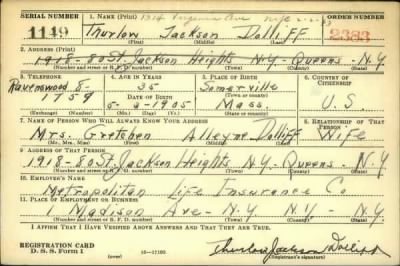 SERIAL NUMBER 1. NAME (Print) ORDER NUMBER
1149 Thurlow Jackson Dolliff 2383
(First) (Middle) (Last)
2. ADDRESS (Print)
1918-80 St. Jackson Heights N.Y.-Queens-N.Y
(Number and street or R. F. D. number) (Town) (County) (State)
3. TELEPHONE 4. AGE IN YEARS 5. PLACE OF BIRTH 6. COUNTRY OF CITIZENSHIP
Ravenswood 8- 35 Somerville
1759 DATE OF BIRTH Mass. U S
5-2-1905
(Exchange) (Number) (Mo.) (Day) (Yr.) (State or country)
7. NAME OF PERSON WHO WILL ALWAYS KNOW YOUR ADDRESS 8. RELATIONSHIP OF THAT PERSON
Mrs. Gretchen Alleyne Dolliff Wife
(Mr., Mrs., Miss) (First) (Middle) (Last)
9. ADDRESS OF THAT PERSON
1918-80 St. Jackson Heights N.Y.-Queens-N.Y
(Number and street or R. F. D. number) (Town) (County) (State)
10. EMPLOYER'S NAME
Metropolitan Life Insurance Co
11. PLACE OF EMPLOYMENT OR BUSINESS
1 Madison Ave-N.Y N.Y-N.Y
(Number and street or R. F. D. number) (Town) (County) (State)
I AFFIRM THAT I HAVE VERIFIED ABOVE ANSWERS AND THAT THEY ARE TRUE.
REGISTRATION CARD
D. S. S. Form 1 (over) 16-17105 Thurlow Jackson Dolliff
(Registrant's signature)